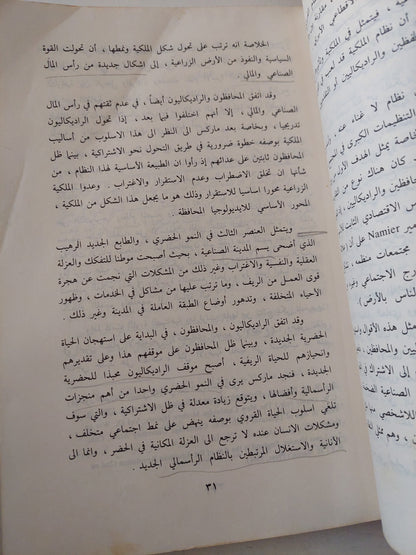 الخلاصة انه ترتب على تحول شكل الملكية ونمطها ، أن تحولت القوة
السياسية والنفوذ من الأرض الزراعية ، إلى اشكال جديدة من رأس المال
الصناعي والمالي .
وقد اتفق المحافظون والراديكاليون أيضاً ، في عدم ثقتهم في رأس المال
الصناعي والمالي ، إلا أنهم اختلفوا فيما بعد ، إذا تحول الراديكاليون
تدريجيا ، وبخاصة بعد ماركس الى النظر الى هذا الاسلوب من أساليب
الملكية بوصفه خطوة ضرورية في طريق التحول نحو الاشتراكية ، بينما ظل
المحافظون ثابتين على عدائهم إذ رأوا ان الطبيعة الأساسية لهذا النظام ، من
شأنها ان تخلق الاضطراب وعدم الاستقرار والاغتراب . وعدوا الملكية
الزراعية محورا اساسيا للاستقرار وذلك هو ما يجعل هذا الشكل من الملكية ،
المحور الأساسي للايديولوجيا المحافظة .
ويتمثل العنصر الثالث في النمو الحضري ، والطابع الجديد الرهيب
الذي أضحى يسم المدينة الصناعية ، بحيث أصبحت موطنا للتفكك والعزلة
العقلية والنفسية والاغتراب وغير ذلك من المشكلات التي نجمت عن هجرة
قوى العمل من الريف ، وما ترتب عليها من مشاكل في الخدمات ، وظهور
الأحياء المتخلفة ، وتدهور أوضاع الطبقة العاملة في المدينة وغير ذلك .
وقد اتفق الراديكاليون ، والمحافظون ، في البداية على استهجان الحياة
الحضرية الجديدة ، وبينما ظل المحافظون على موقفهم هذا وعلى تقديرهم
وانحيازهم للحياة الريفية . أصبح موقف الراديكاليون محبذا للحضرية
الجديدة ، فنجد ماركس يرى في النمو الحضري واحدا من أهم منجزات
الرأسمالية وأفضالها ، ويتوقع زيادة معدلة في ظل الاشتراكية ، والتي سوف
تلغي اسلوب الحياة القروي بوصفه ينهض على نمط اجتماعي متخلف ،
ومشكلات الانسان عنده لا ترجع الى العزلة المكانية في الحضر ، وانما الى
الأنانية والاستغلال المرتبطين بالنظام الرأسمالي الجديد .
٣١
فيتمثل في الملكية
أن نظام الملكية قد
المحافظين والراديكاليين ،
نظام لا غناء عنه
التنظيمات الكبرى في
خاصة يمثل الهدف الأول
كان هناك نوع من
المحافظين والراديكاليين ،
Namier
مجتمعات منظمه ،
الاجتماعي وغير
الناس بالأرض )